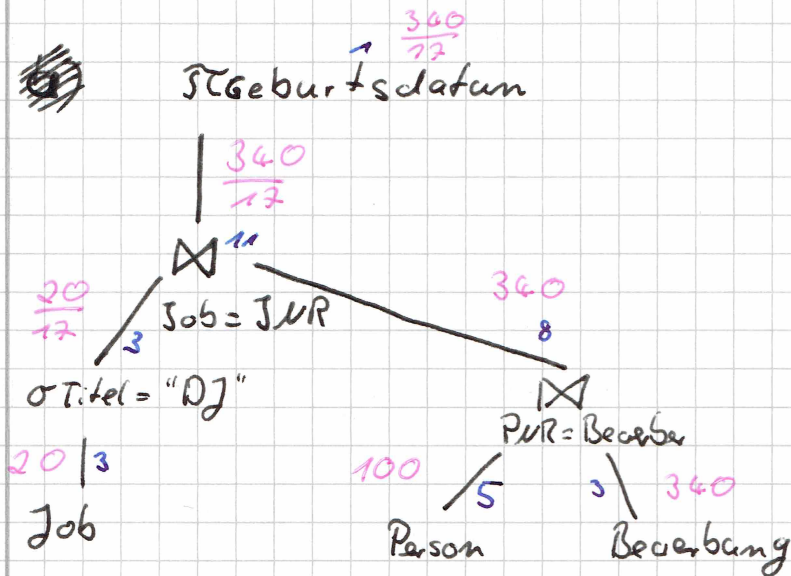 340
1 17
πGeburtsdatum
340
17
⋈ 11
20
17
3
Job = JNR
340
8
σTitel = "DJ"
⋈
PNR = Bewerber
20 3
100
5
3
340
Job
Person
Bewerbung